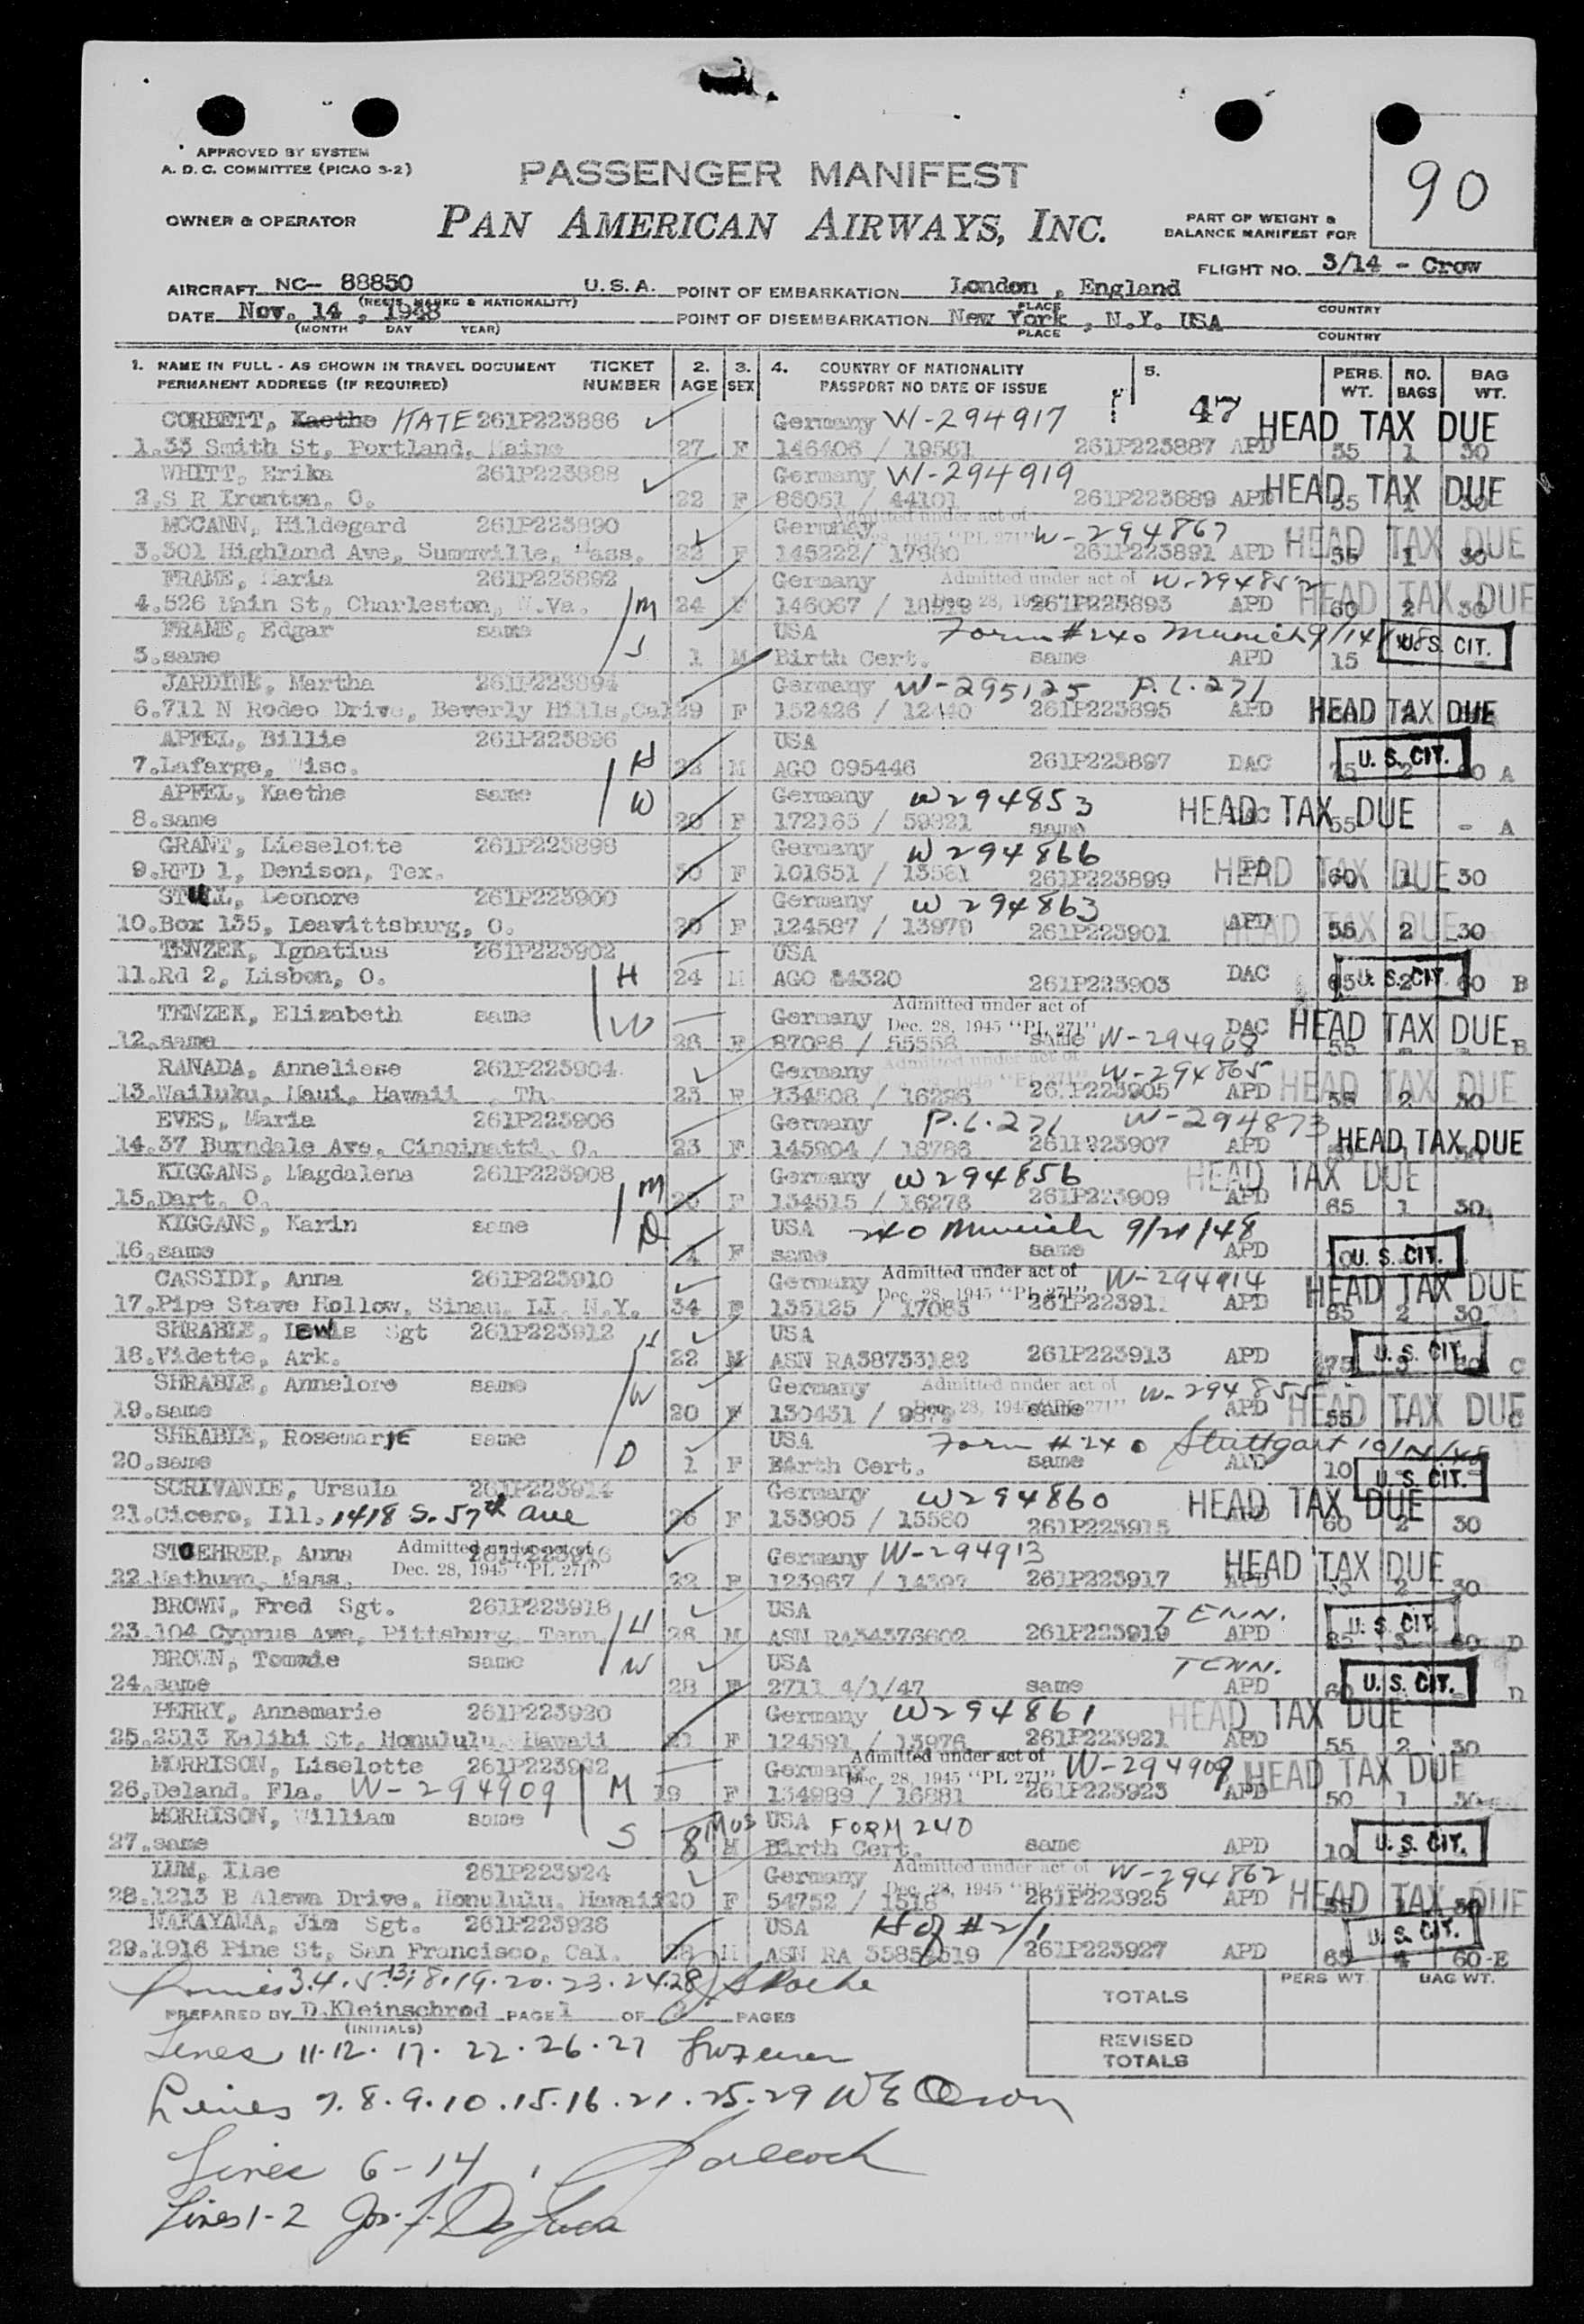 90
APPROVED BY SYSTEM
A. D. C. COMMITTEE (PICAO 3-2)
PASSENGER MANIFEST
OWNER & OPERATOR PAN AMERICAN AIRWAYS, INC.
PART OF WEIGHT &
BALANCE MANIFEST FOR
FLIGHT NO. 3/14 - Crow
AIRCRAFT NC- 88850 U.S.A. POINT OF EMBARKATION London , England
(REGIS. MARKS & NATIONALITY) PLACE COUNTRY
DATE Nov. 14 , 1948 POINT OF DISEMBARKATION New York , N.Y. USA
(MONTH DAY YEAR) PLACE COUNTRY
1. NAME IN FULL - AS SHOWN IN TRAVEL DOCUMENT TICKET 2. 3. 4. COUNTRY OF NATIONALITY 5. PERS. NO. BAG
PERMANENT ADDRESS (IF REQUIRED) NUMBER AGE SEX PASSPORT NO DATE OF ISSUE WT. BAGS WT.
CORBETT, Kaethe KATE 261P223886 Germany W-294917 47 HEAD TAX DUE
1.33 Smith St, Portland, Maine 27 F 146406 / 19581 261P223887 APD 55 1 30
WHITT, Erika 261P223888 Germany W-294919 HEAD TAX DUE
2.S R Ironton, O. 22 F 86051 / 44101 261P223889 APD 55 1 30
MCCANN, Hildegard 261P223890 Germany Admitted under act of Dec. 28, 1945 "PL 271" W-294867 HEAD TAX DUE
3.301 Highland Ave, Summville, Mass. 22 F 145222/ 261P223891 APD 55 1 30
FRAME, Maria 261P223892 Germany Admitted under act of W-294852 HEAD TAX DUE
4.526 Main St, Charleston, W.Va. M 24 F 146067 / Dec. 28, 261P223893 APD 60 2 30
FRAME, Edgar same USA Form #240 Munich 9/14/48 U.S. CIT.
5.same S 1 M Birth Cert. same APD 15
JARDINE, Martha 261P223894 Germany W-295125 P.L.271
6.711 N Rodeo Drive, Beverly Hills,Cal 29 F 152426 / 12440 261P223895 APD HEAD TAX DUE
APFEL, Billie 261P223896 H USA U.S. CIT.
7.Lafarge, Wisc. M AGO 095446 261P223897 DAC 75 2 60 A
APFEL, Kaethe same W Germany W294853 HEAD TAX DUE
8.same F 172165 / 59821 same DAC 55 - A
GRANT, Lieselotte 261P223898 Germany W294866 HEAD TAX DUE
9.RFD 1, Denison, Tex. 30 F 101651 / 13561 261P223899 60 1 30
STULL, Leonore 261P223900 Germany W294863 HEAD TAX DUE
10.Box 135, Leavittsburg, O. F 124587 / 13979 261P223901 APD 55 2 30
TENZEK, Ignatius 261P223902 USA U.S. CIT.
11.Rd 2, Lisbon, O. H 24 M AGO 84320 261P223903 DAC 65 2 60 B
TENZEK, Elizabeth same W Germany Admitted under act of Dec. 28, 1945 "PL 271" HEAD TAX DUE
12.same 26 F 87086 / 55558 same W-294908 DAC 55 - - B
RANADA, Anneliese 261P223904 Germany Admitted under act of Dec. 28, 1945 "PL 271" W-294865 HEAD TAX DUE
13.Wailuku, Maui, Hawaii , Th 23 F 134508 / 16296 261P223905 APD 55 2 30
EVES, Maria 261P223906 Germany P.L.271 W-294873
14.37 Burndale Ave, Cincinatti, O. 23 F 145904 / 18786 261P223907 APD HEAD TAX DUE
KIGGANS, Magdalena 261P223908 M Germany W294856 HEAD TAX DUE
15.Dart, O. F 134515 / 16276 261P223909 APD 65 1 30
KIGGANS, Karin same D USA 240 Munich 9/21/48
16.same F same same APD U.S. CIT.
CASSIDY, Anna 261P223910 Germany Admitted under act of Dec. 28, 1945 "PL 271" W-294914 HEAD TAX DUE
17.Pipe Stave Hollow, Sinau, LI, N.Y. 34 F 135125 / 17083 261P223911 APD 65 2 30
SHRABLE, Lewis Sgt 261P223912 H USA U.S. CIT.
18.Vidette, Ark. 22 M ASN RA38733182 261P223913 APD 175 3 C
SHRABLE, Annelore same W Germany Admitted under act of Dec. 28, 1945 "PL 271" W-294855 HEAD TAX DUE
19.same 20 F 130431 / 9879 same APD 55 C
SHRABLE, Rosemarie same USA Form #240 Stuttgart
20.same D 1 F Birth Cert. same APD 10 U.S. CIT.
SCRIVANIE, Ursula 261P223914 Germany W294860 HEAD TAX DUE
21.Cicero, Ill. 1418 S. 57th Ave 26 F 133905 / 15580 261P223915 60 2 30
STOEHRER, Anna Admitted under act of Dec. 28, 1945 "PL 271" 261P223916 Germany W-294913 HEAD TAX DUE
22.Mathuen, Mass. 22 F 123967 / 14397 261P223917 APD 55 2 30
BROWN, Fred Sgt. 261P223918 H USA TENN. U.S. CIT.
23.104 Cyprus Awe, Pittsburg, Tenn. 28 M ASN RA34376602 261P223919 APD 85 3 60 D
BROWN, Tommie same W USA TENN.
24.same 28 F 2711 4/1/47 same APD 60 U.S. CIT. D
PERRY, Annemarie 261P223920 Germany W294861 HEAD TAX DUE
25.2513 Kalihi St, Honululu, Hawaii 21 F 124591 / 13976 261P223921 APD 55 2 30
MORRISON, Liselotte 261P223922 Germany Admitted under act of Dec. 28, 1945 "PL 271" W-294909 HEAD TAX DUE
26.Deland, Fla. W-294909 M 19 F 134989 / 16881 261P223923 APD 50 1 30
MORRISON, William same S 8 MOS USA FORM 240
27.same M Birth Cert. same APD 10 U.S. CIT.
LUM, Ilse 261P223924 Germany Admitted under act of Dec. 28, 1945 "PL 271" W-294862 HEAD TAX DUE
28.1213 B Alewa Drive, Honululu, Hawaii 20 F 54752 / 1518 261P223925 APD 55 30
NAKAYAMA, Jim Sgt. 261P223926 USA H of #2/1 U.S. CIT.
29.1916 Pine St, San Francisco, Cal. 28 M ASN RA 261P223927 APD 65 4 60-E
3.4.5.13.18.19.20.23.24.28 J. S Roche
PERS WT. BAG WT.
TOTALS
PREPARED BY D.Kleinschrod PAGE 1 OF PAGES
(INITIALS)
REVISED TOTALS
Lines 11.12.17.22.26.27
Lines 7.8.9.10.15.16.21.25.29 WE Olson
Lines 6-14
Lines 1-2 Jos. F. De Luca